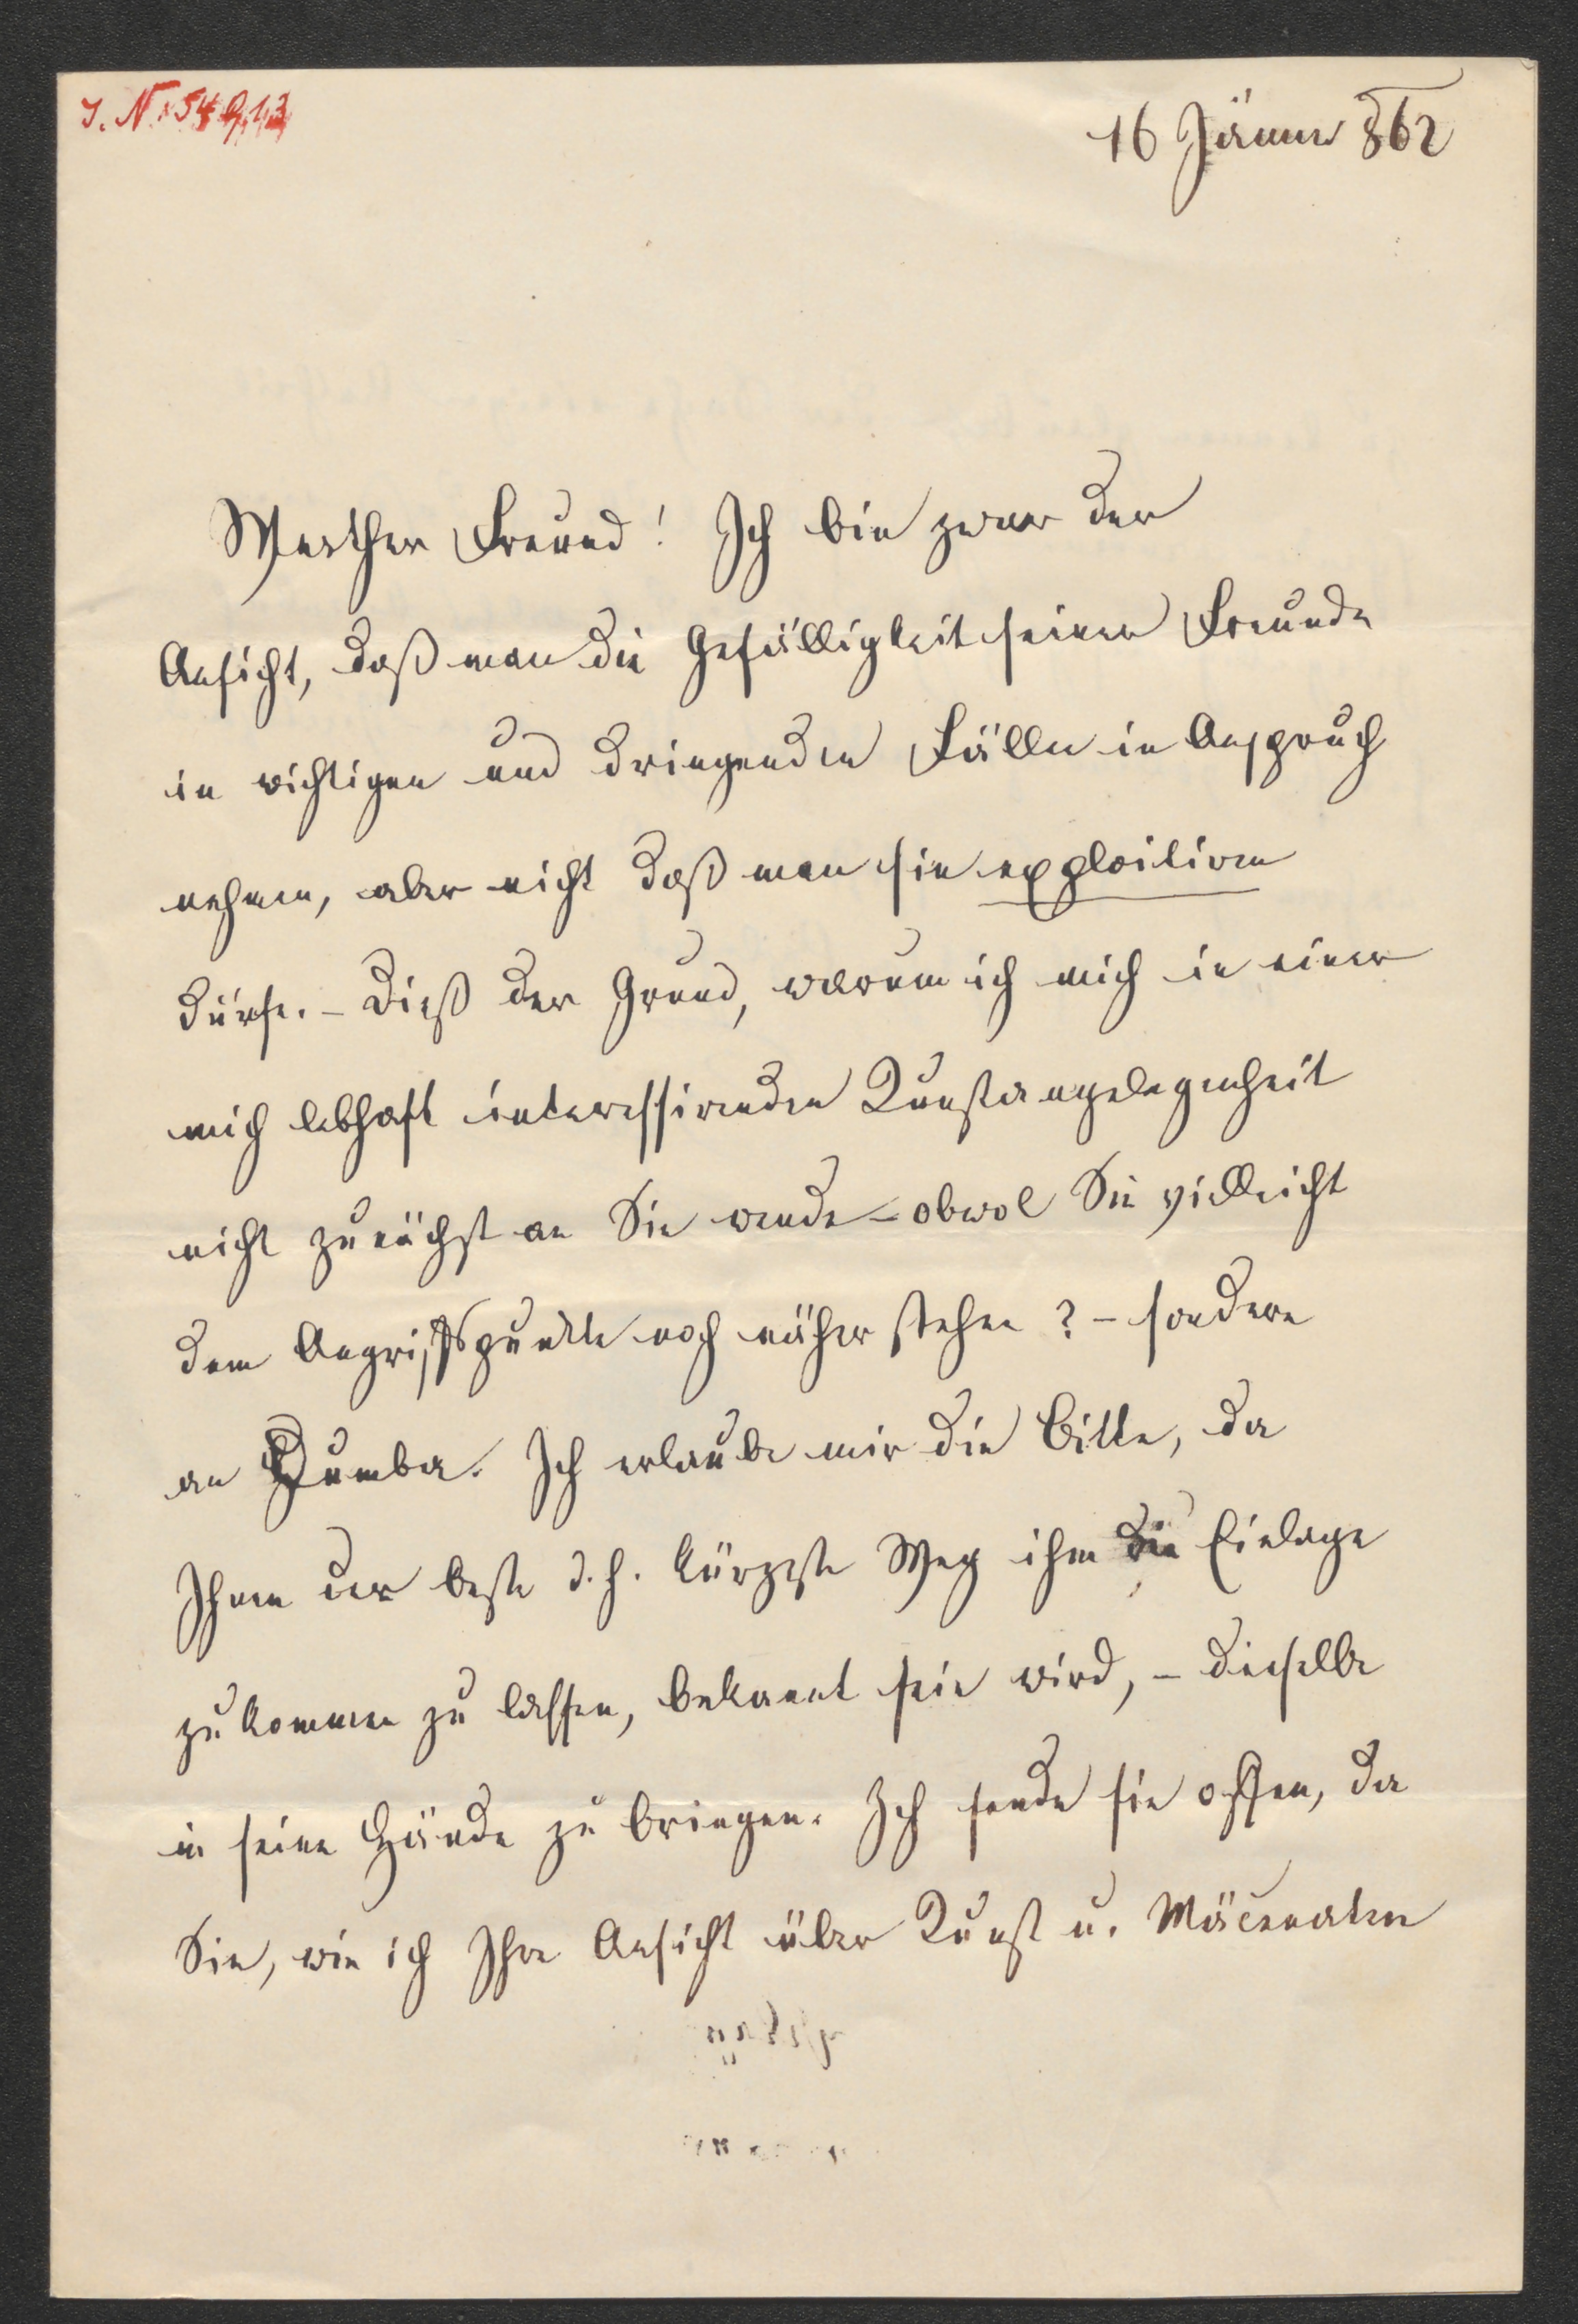 J. N. 54913
16 Jänner 862
Werther Freund! Ich bin zwar der
Ansicht, daß man die Gefälligkeit seiner Freunde
in wichtigen und dringenden Fällen in Anspruch
nehmen, aber nicht daß man sie exploitiren
dürfe. – Dieß der Grund, warum ich mich in einer
mich lebhaft interessirenden Kunstangelegenheit
nicht zunächst an Sie wende – obwol Sie vielleicht
dem Angriffspunkte noch näher stehen? – sondern
an Dumba. Ich erlaube mir die Bitte, da
Ihnen der beste d. h. kürzeste Weg ihm die Einlage
zukommen zu lassen, bekannt sein wird, – dieselbe
in seine Hände zu bringen. Ich sende sie offen, da
Sie, wie ich Ihre Ansicht über Kunst u. Mäcenaten